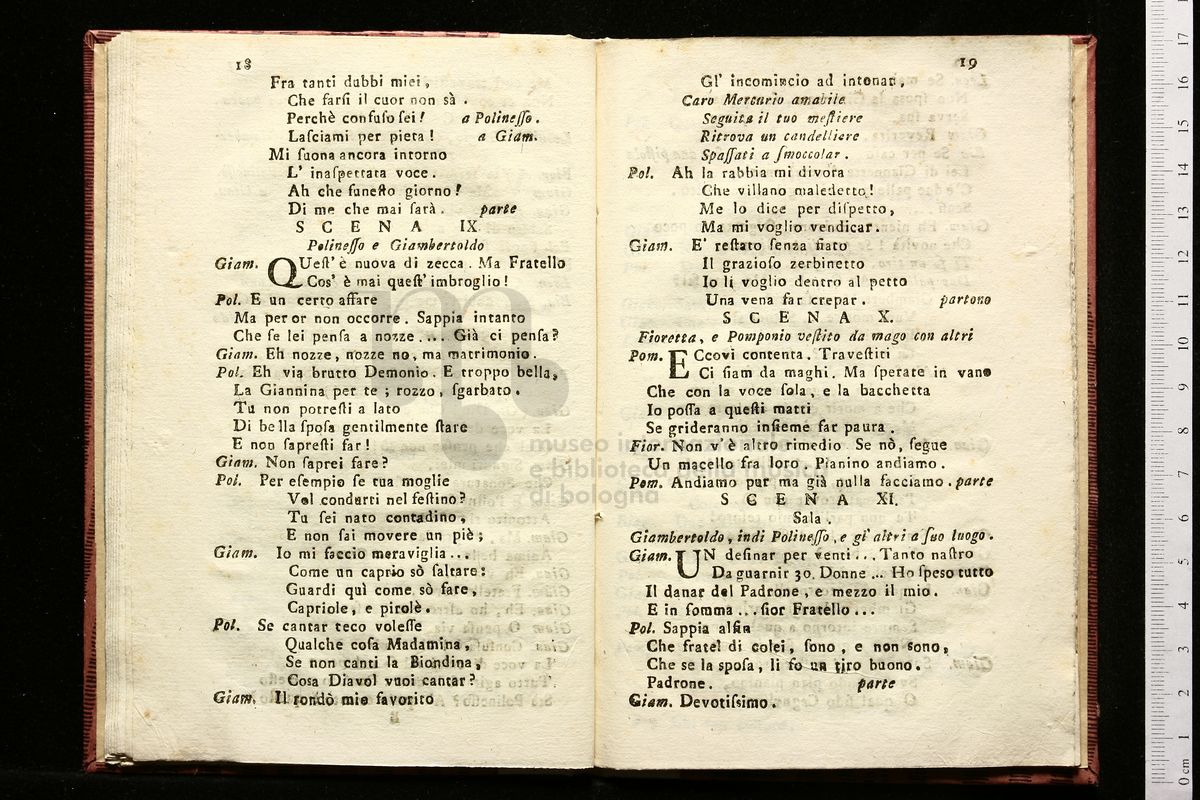 18
Fra tanti dubbi miei,
Che farſi il cuor non sà .
Perchè confuſo ſei ! a Polineſſo.
Laſciami per pieta ! a Giam.
Mi ſuona ancora intorno
L' inaſpettata voce .
Ah che funeſto giorno !
Di me che mai ſarà . parte
S C E N A IX.
Polineſſo e Giambertoldo
Giam. QUeſt' è nuova di zecca . Ma Fratello
Cos' è mai queſt' imbroglio !
Pol. E un certo affare
Ma per or non occorre . Sappia intanto
Che ſe lei penſa a nozze .... Già ci penſa ?
Giam. Eh nozze, nozze no, ma matrimonio .
Pol. Eh via brutto Demonio . E troppo bella,
La Giannina per te ; rozzo , ſgarbato .
Tu non potreſti a lato
Di bella ſpoſa gentilmente ſtare
E non ſapreſti far !
Giam. Non ſaprei fare ?
Pol. Per eſempio ſe tua moglie
Vol condurti nel feſtino ?
Tu ſei nato contadino ,
E non ſai movere un piè ;
Giam. Io mi faccio maraviglia ...
Come un caprio sò ſaltare :
Guardi quì come sò fare,
Capriole, e pirolè .
Pol. Se cantar teco voleſſe
Qualche coſa Madamina ,
Se non canti la Biondina ,
Coſa Diavol vuoi cantar ?
Giam. Il rondò mio favorito
19
Gl' incomincio ad intonar ,
Caro Mercurio amabile
Seguita il tuo meſtiere
Ritrova un candelliere
Spaſſati a ſmoccolar .
Pol. Ah la rabbia mi divora
Che villano maledetto !
Me lo dice per diſpetto,
Ma mi voglio vendicar .
Giam. E' reſtato ſenza fiato
Il grazioſo zerbinetto
Io li voglio dentro al petto
Una vena far crepar . partono
S C E N A X.
Fioretta, e Pomponio veſtito da mago con altri
Pom. ECcovi contenta . Traveſtiti
Ci ſiam da maghi . Ma ſperate in vano
Che con la voce ſola , e la bacchetta
Io poſſa a queſti matti
Se grideranno inſieme far paura .
Fior. Non v'è altro rimedio Se nò, ſegue
Un macello fra loro . Pianino andiamo .
Pom. Andiamo pur ma già nulla facciamo . parte
S C E N A XI.
Sala .
Giambertoldo, indi Polineſſo , e gl' altri a ſuo luogo .
Giam. UN deſinar per venti ... Tanto naſtro
Da guarnir 30. Donne ... Ho ſpeso tutto
Il danar del Padrone , e mezzo il mio .
E in ſomma ... ſior Fratello ...
Pol. Sappia alfin
Che fratel di colei, ſono , e non ſono,
Che se la ſpoſa , li fo un tiro buono .
Padrone . parte
Giam. Devotiſsimo .
museo internazionale
e biblioteca della musica
di bologna
0 cm 1 2 3 4 5 6 7 8 9 10 11 12 13 14 15 16 17